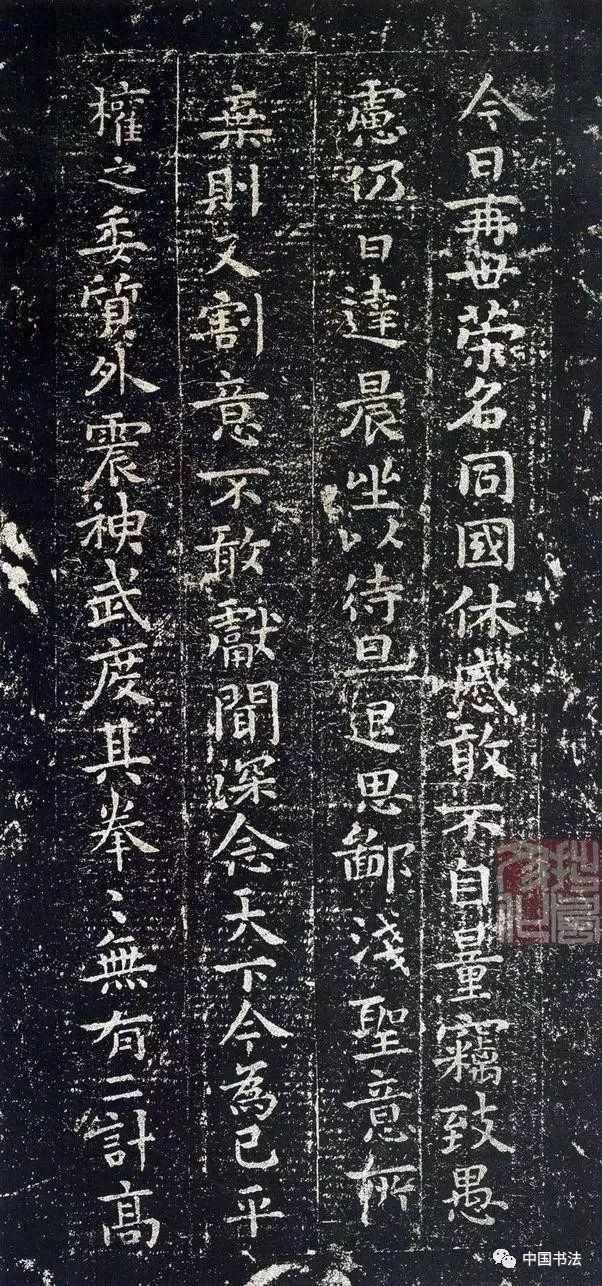 今日再世榮名同國休慼敢不自量竊致愚
慮仍日達晨坐以待旦退思鄙淺聖意所
棄則又割意不敢獻聞深念天下今為已平
權之委質外震神武度其拳〻無有二計高
中国书法